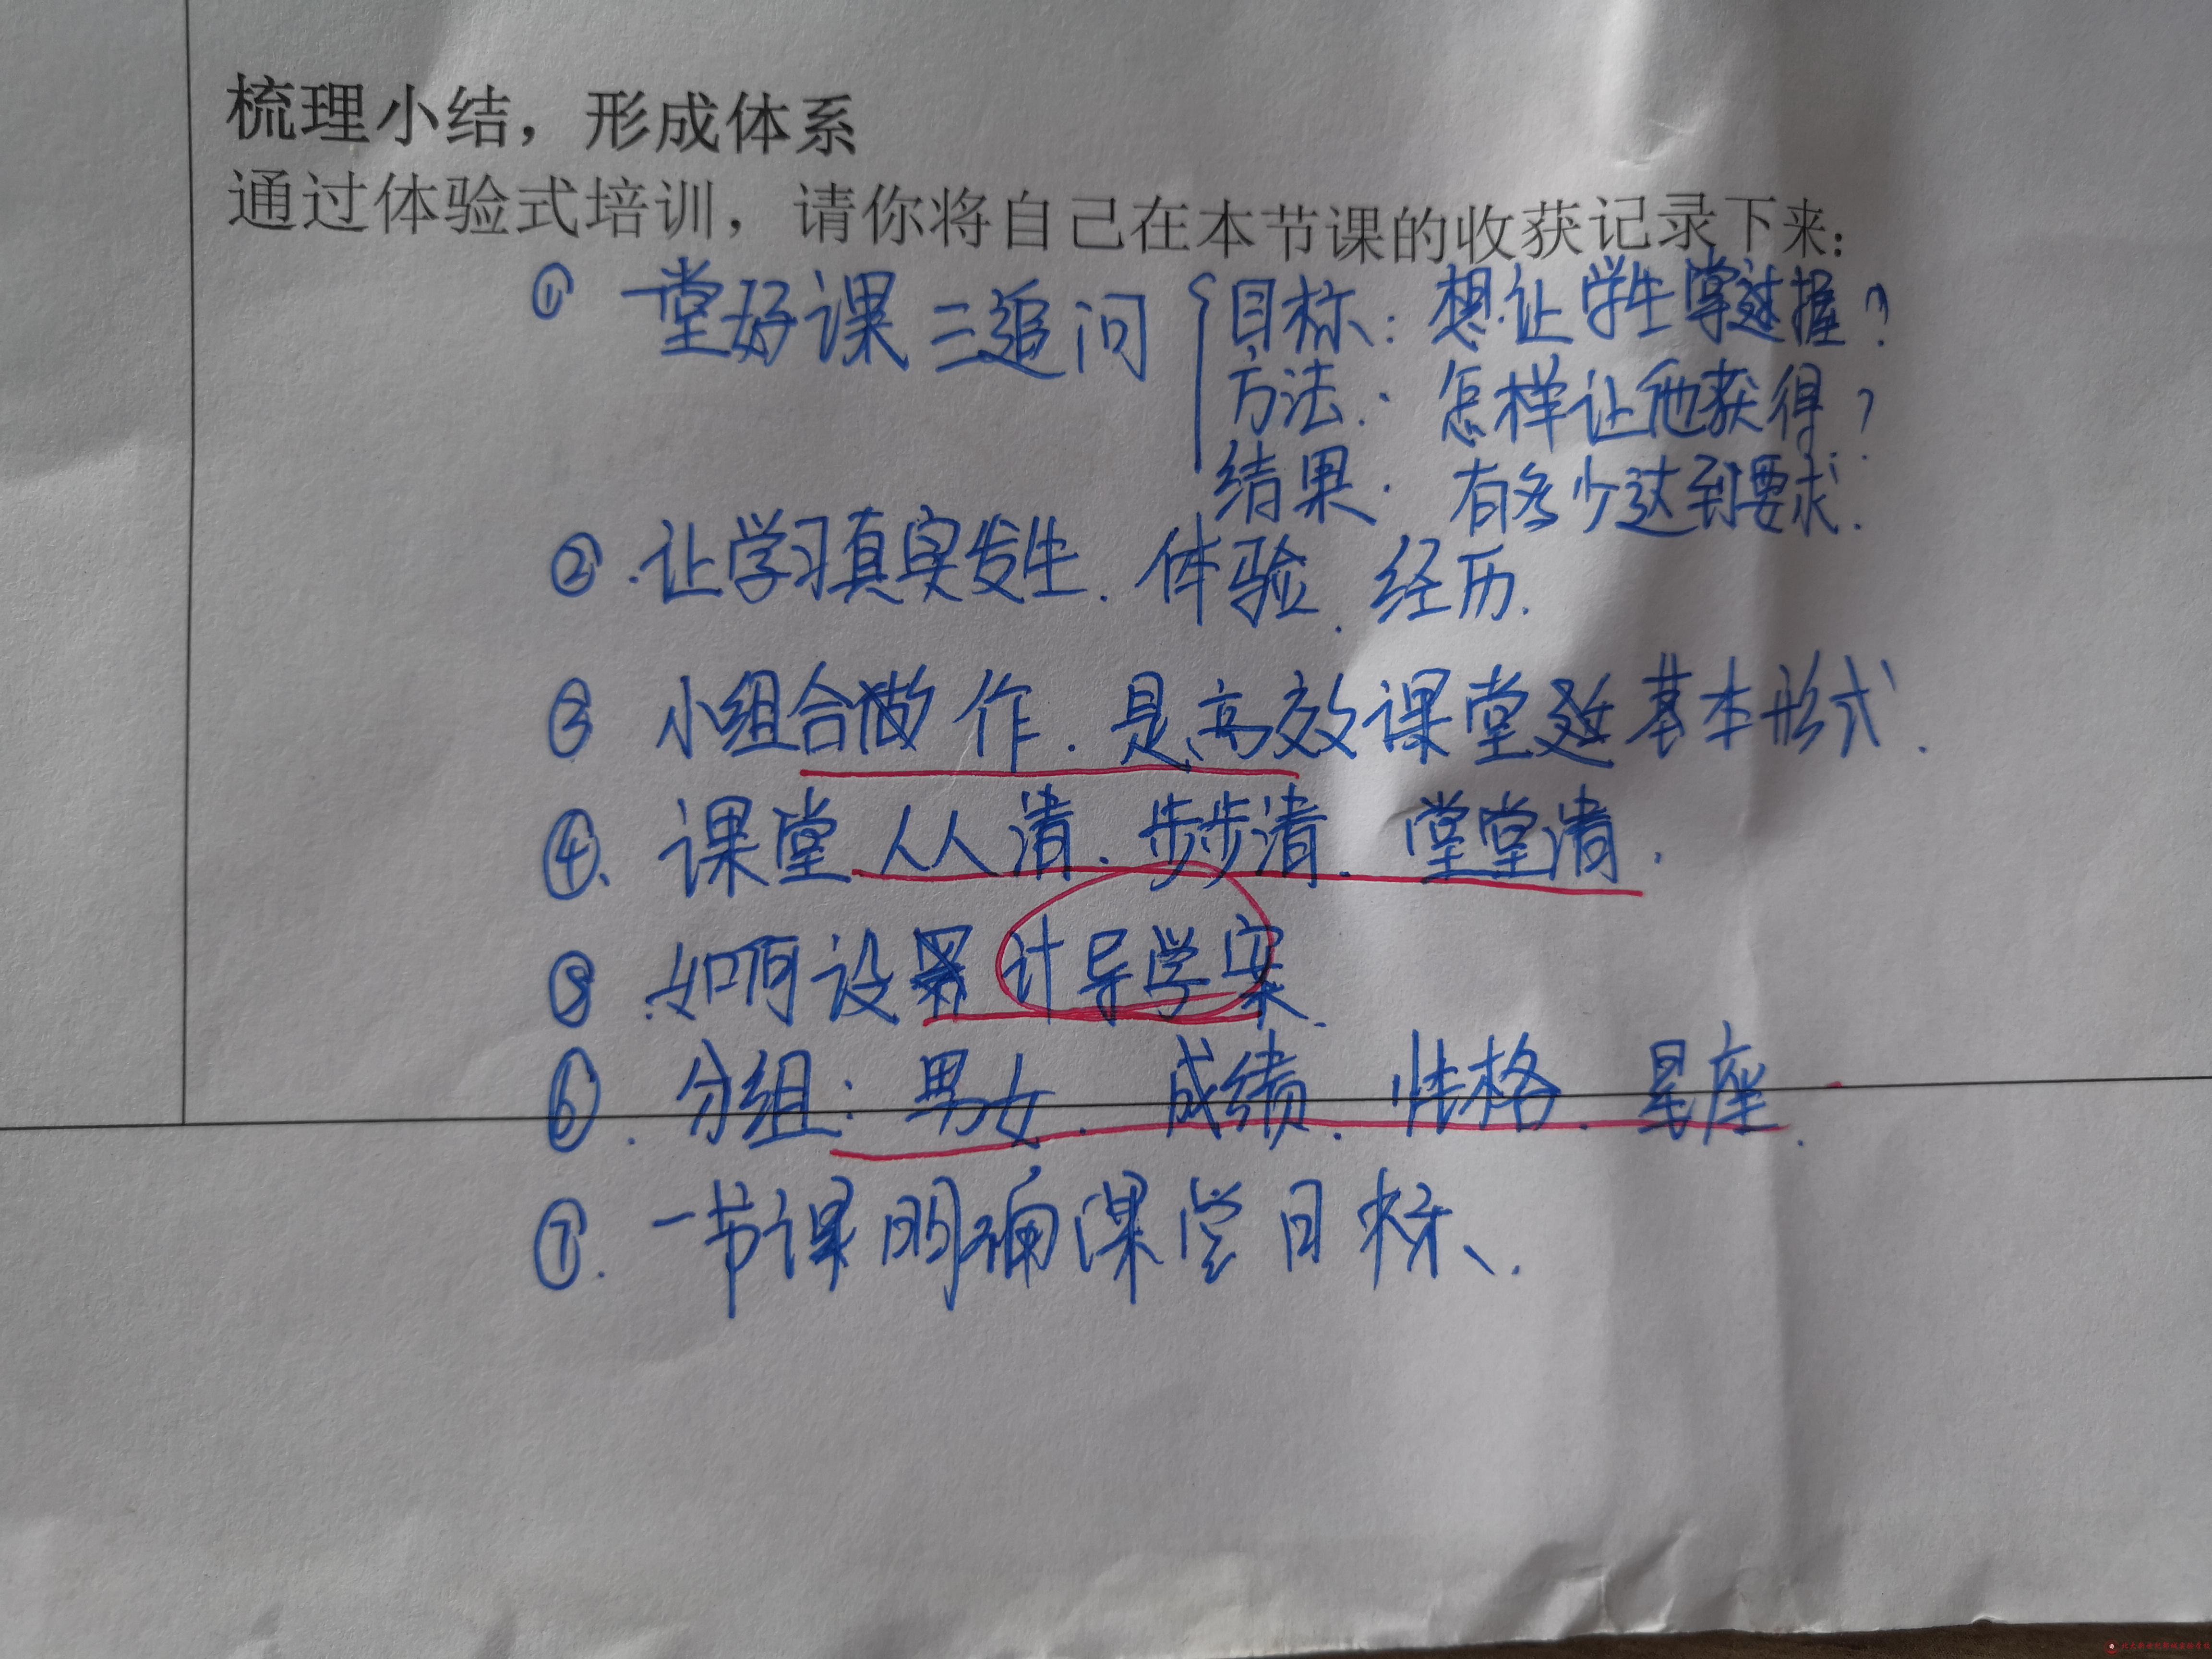 梳理小结，形成体系
通过体验式培训，请你将自己在本节课的收获记录下来：
① 一堂好课三追问 目标：想让学生掌握？
方法：怎样让他获得？
结果：有多少达到要求.
② 让学习真实发生. 体验. 经历.
③ 小组合作. 是高效课堂基本形式.
④、课堂人人清. 步步清. 堂堂清.
⑤ 如何设计导学案.
⑥. 分组：男女. 成绩. 性格. 星座.
⑦. 一节课明确课堂目标.